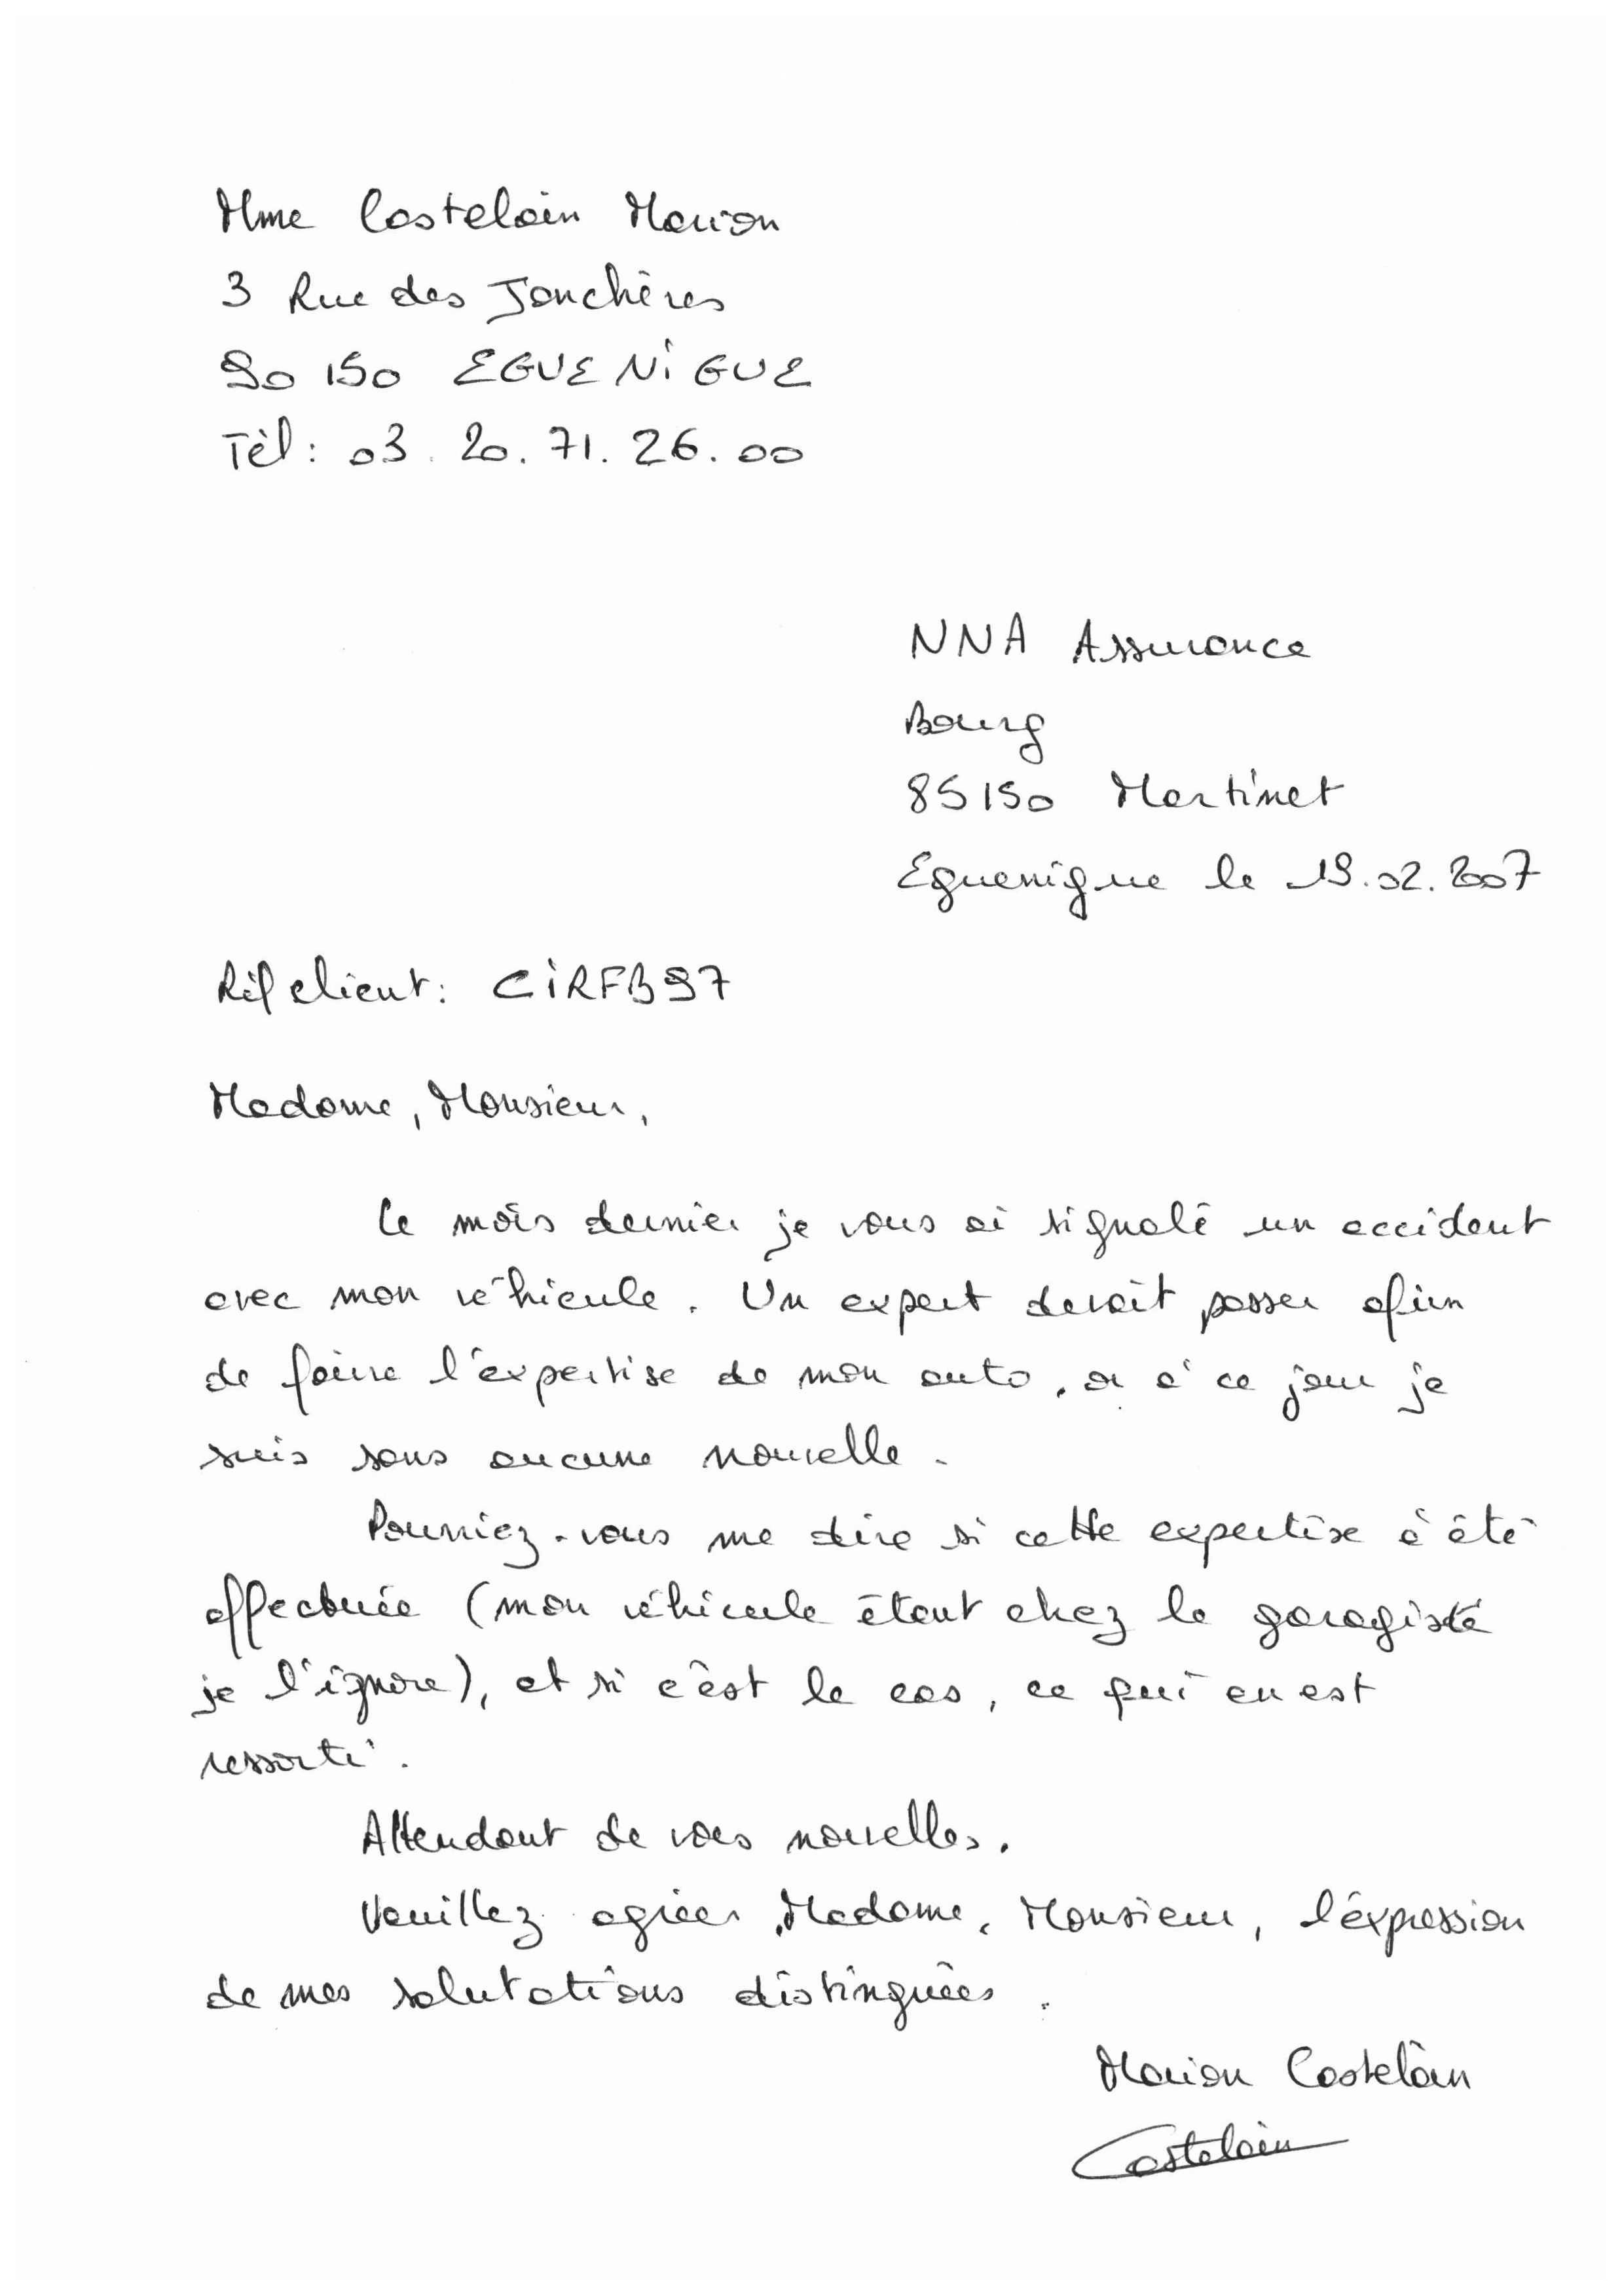 Mme Castelain Marion
3 Rue des Jonchères
90150 EGUENIGUE
Tèl : 03.20.71.26.00
NNA Assurance
Bourg
85150 Martinet
Eguenigue le 19.02.2007
Réf client : CIRFB97
Madame, Monsieur,
Le mois dernier je vous ai signalé un accident
avec mon véhicule. Un expert devait passer afin
de faire l'expertise de mon auto, or à ce jour je
suis sans aucune nouvelle.
Pourriez-vous me dire si cette expertise à été
effectuée (mon véhicule étant chez le garagiste
je l'ignore), et si c'est le cas, ce qui en est
ressorti.
Attendant de vos nouvelles.
Veuillez agréer, Madame, Monsieur, l'expression
de mes salutations distinguées.
Marion Castelain
Castelain